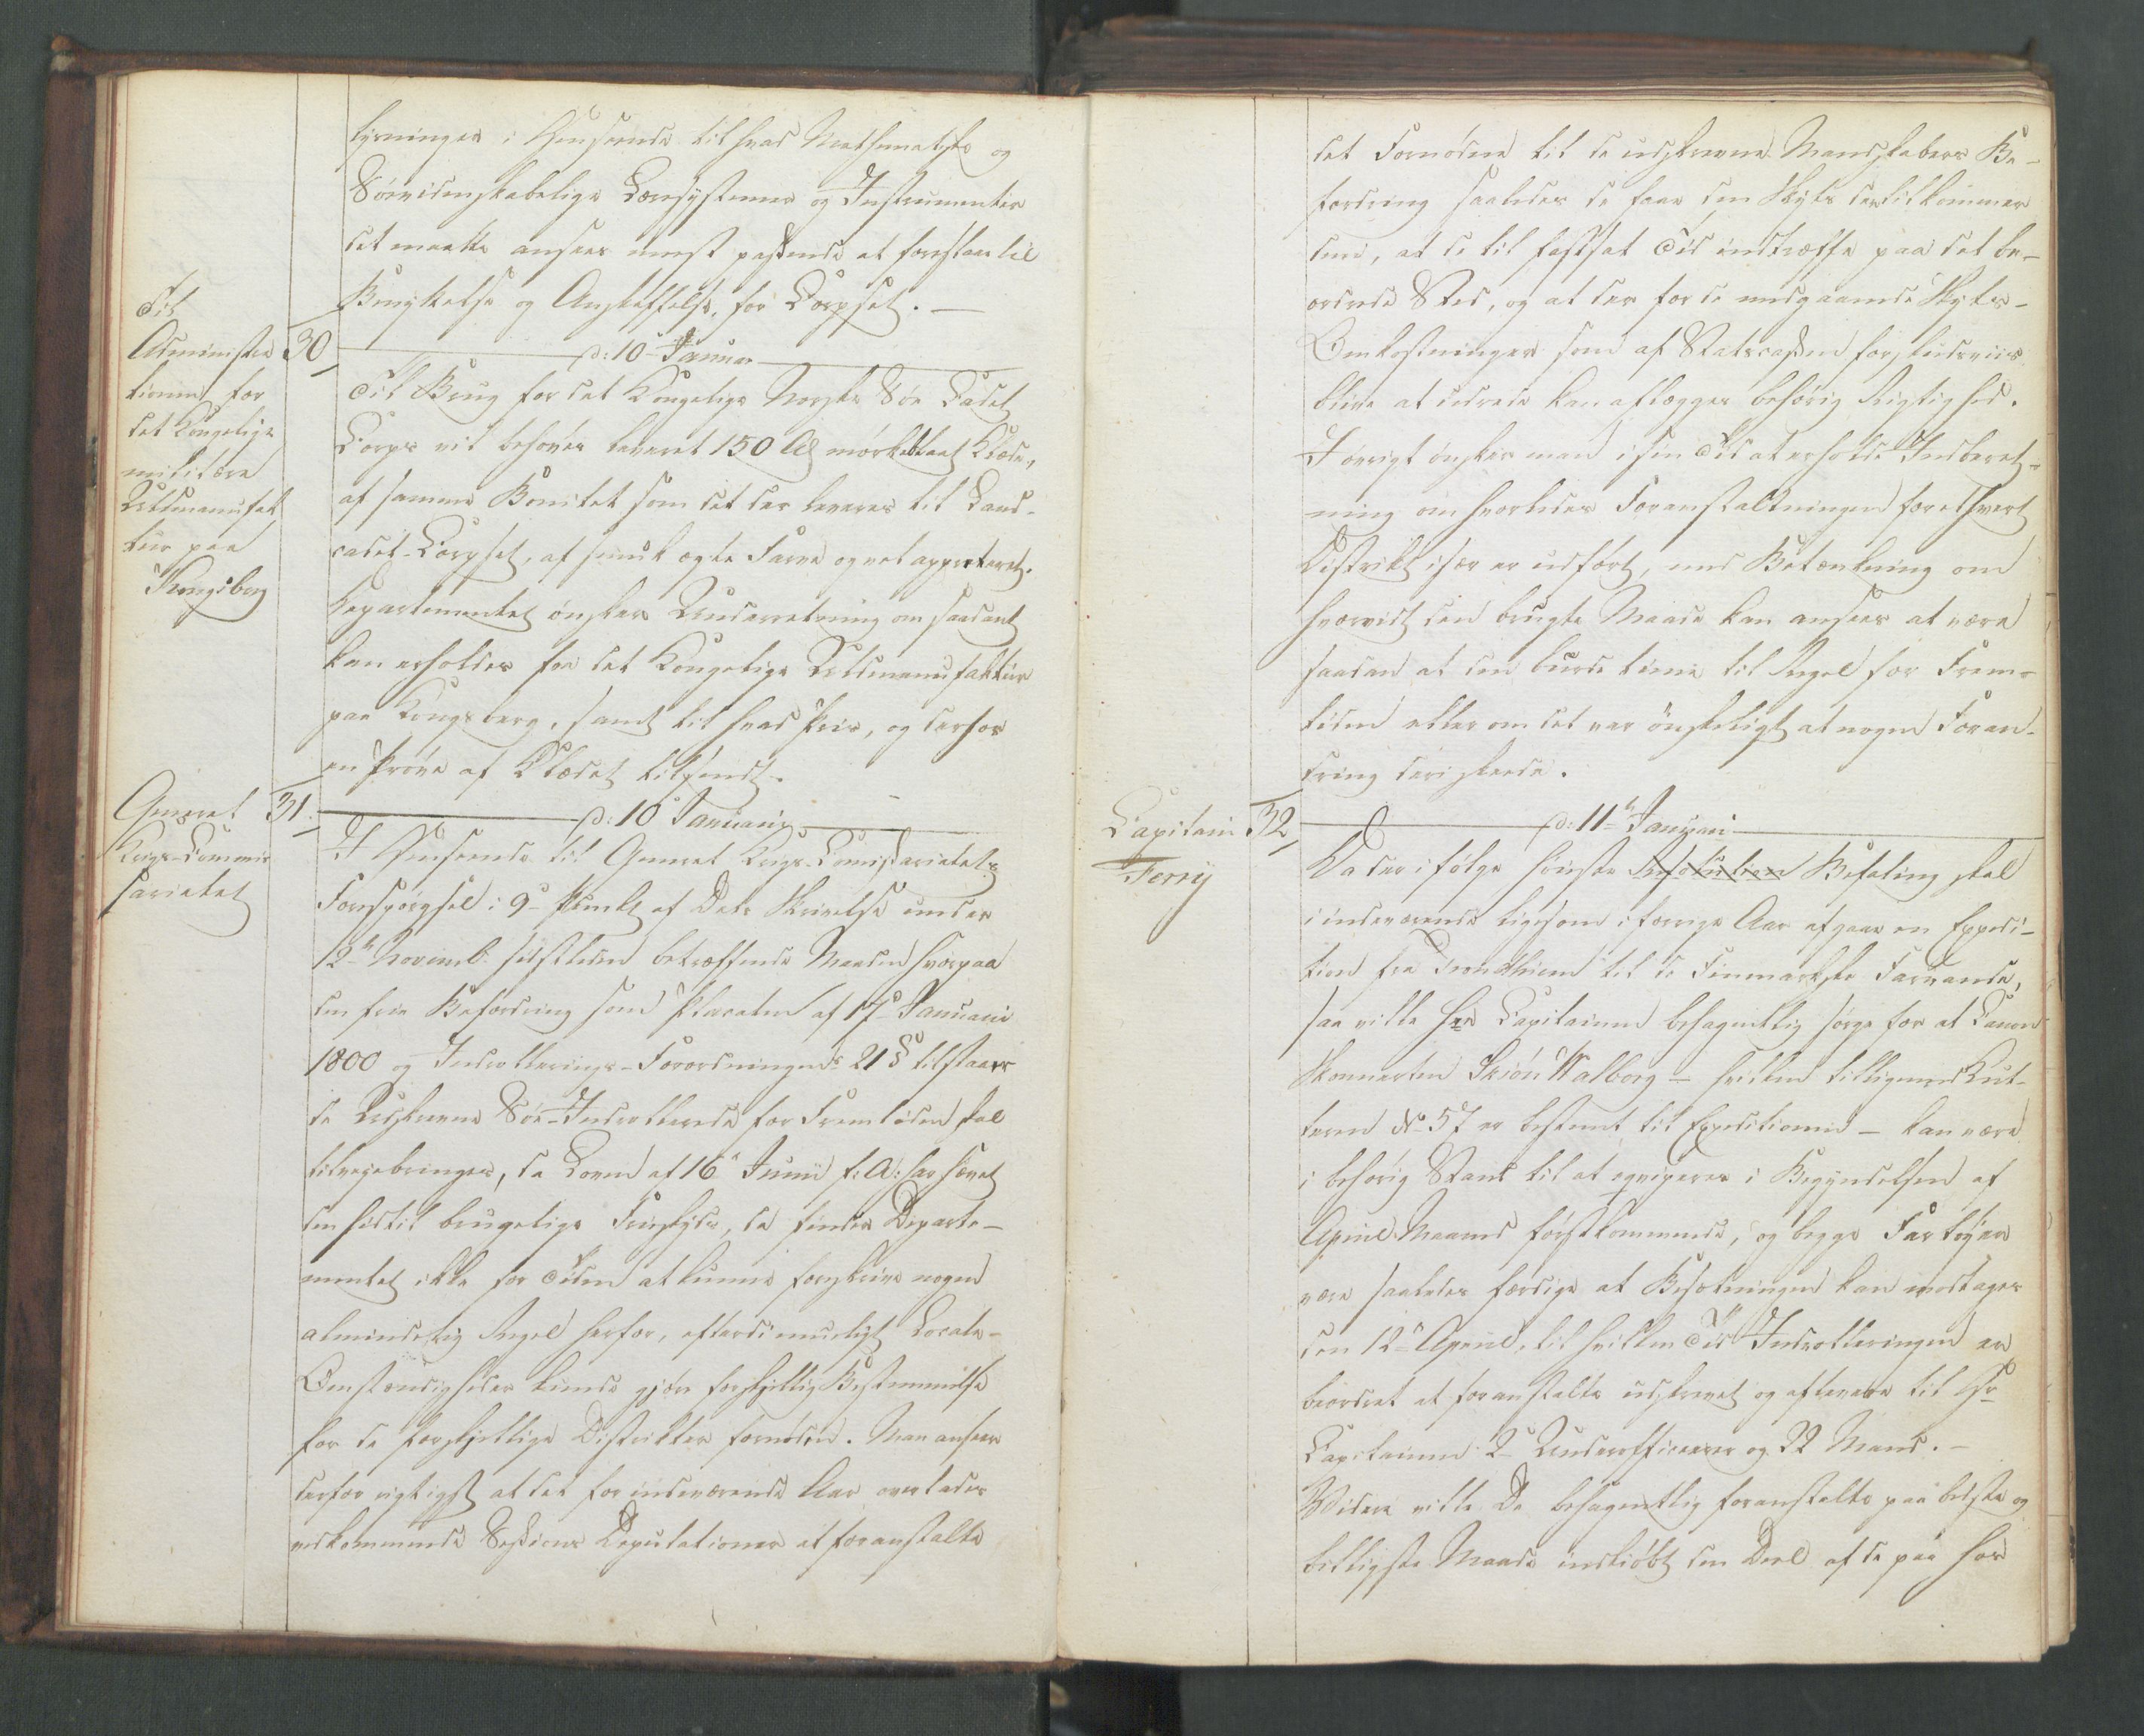 lysninger i Henseende til hvad Mathematiske og
Søevidenskabelige Læresystemer og Instrumenter
det maatte ansees meest passende at foreslaae til
Benyttelse og Anskaffelse, for Corpset. —
Til
Administra
tionen for
det Kongelige
militære
Uldmanufak
tur paa
Kongsberg
30
d: 10 Januar
Til Brug for det Kongelige Norske Søe Cadet
Corps vil behøves leveret 150 Al mørkeblaat Klæde,
af samme Bonitet som det der leveres til Land-
cadet-Corpset, af smuk ægte Farve og vel appreteret.
Departementet ønsker Underretning om saadant
kan erholdes fra det Kongelige Uldmanufaktur
paa Kongsberg, samt til hvad Priis, og derhos
en Prøve af Klædet tilsendt.
General
Krigs-Commis
sariatet
31.
d: 10 Januarii
I Henseende til General Krigs-Comissariatets
Forespørgsel i 9de Punkt af Dets Skrivelse under
12te Novemb. sidstleden betræffende Maaden hvorpaa
den frie Befordring som Placaten af 17de Januarii
1800 og Indrollerings-Forordningens 21 § tilstaaer
de Udskrevne Søe-Indrollerede for Fremtiden skal
tilveiebringes, da Loven af 16de Junii f: A: har hævet
den hidtil brugelige Friskyds, da finder Departe-
mentet ikke for Tiden at kunne foreskrive nogen
almindelig Regel herfor, efterdi mueligt Locale-
Omstændigheder kunde gjøre forskjellig Bestemmelse
for de forskjellige Distrikter fornøden. Man anseer
derfor rigtigst at det for indeværende Aar overlades
vedkommende Sessions Deputationer at foranstalte
det Fornødne til de udskrevne Mandskabers Be-
fordring saaledes de faae den Skyts der tilkommer
dem, at de til fastsat Tid indtræffe paa det be-
ordrede Sted, og at der for de medgaaende Skyts-
Omkostninger som af Statscassen forskudsviis
blive at udrede kan aflægges behørig Rigtighed.
I øvrigt ønsker man i sin Tid at erholde Indberet-
ning om hvorledes Foranstaltningen for ethvert
Distrikt især er udført, med Betænkning om
hvorvidt den brugte Maade kan ansees at være
saadan at den burde tiene til Regel for Frem-
tiden eller om det var ønskeligt at nogen Foran-
dring deri skeede.
Capitain
Ferry
32
d: 11te Januari
Da der ifølge høieste Resolution Befaling skal
i indeværende ligesom i forrige Aar afgaae en Expedi-
tion fra Trondhiem til de Finmarkske Farvande,
saa ville Hr Capitainen behageligt sørge for at Canon
Skonnerten Skiøn Walborg — hvilken tilligemed Kut-
teren No 57 er bestemt til Expeditionen — kan være
i behørig Stand til at eqviperes i Begyndelsen af
April Maaned førstkommende, og begge Fartøyer
være saaledes færdige at Besætningen kan modtages
den 12te April, til hvilken Tid Indrolleringen er
beordret at foranstalte udskrevet og aflevere til Hr
Capitainen 2de Underofficerer og 22 Mand. —
Widere ville De behageligt foranstalte paa bedste og
billigste Maade indkiøbt den Deel af de paa her